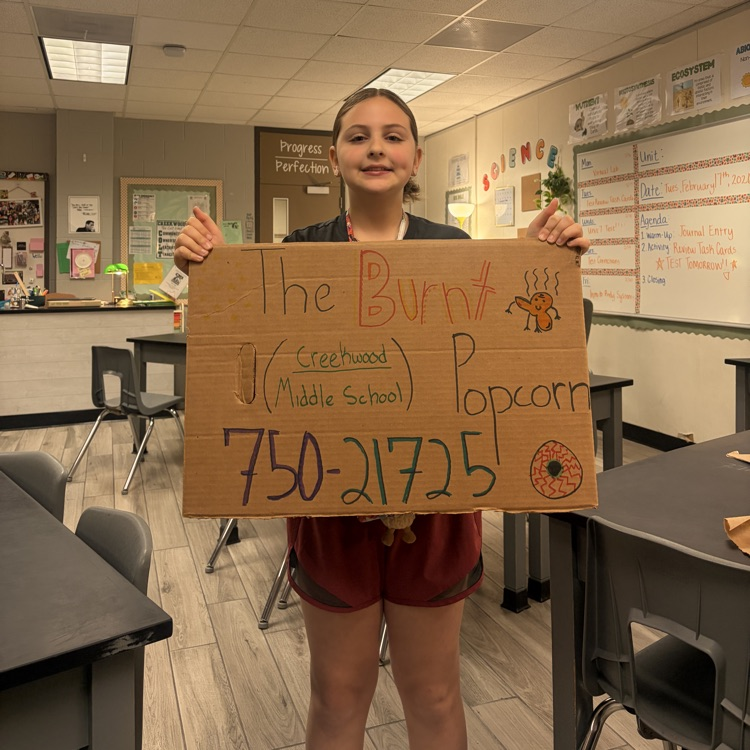 The Burnt
(Creekwood
Middle School)
Popcorn
750-21725
Progress
Perfection
SCIENCE
NUTRIENT
ECOSYSTEM
Unit:
Date: Tues, February 17th, 202
Agenda
1. Warm-Up Journal Entry
2. Activity Review Task Cards
☆ TEST TOMORROW! ☆
3. Closing
Mon.